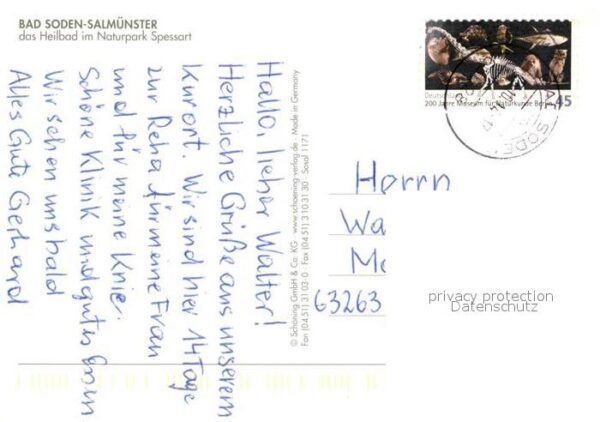 BAD SODEN-SALMÜNSTER
das Heilbad im Naturpark Spessart
Hallo, lieber Walter!
Herzliche Grüße aus unserem
Kurort. Wir sind hier 14 Tage
zur Reha für meine Frau
und für meine Knie.
Schöne Klinik und gutes Essen
Wir sehen uns bald
Alles Gute Gerhard
© Schöning GmbH & Co. KG · www.schoening-verlag.de · Made in Germany
Fon (04 51) 31 03-0 · Fax (04 51) 3 10 31 30 · Sosal 1171
Deutschland
200 Jahre Museum für Naturkunde Berlin 45
Herrn
Wa
Mo
63263
privacy protection
Datenschutz